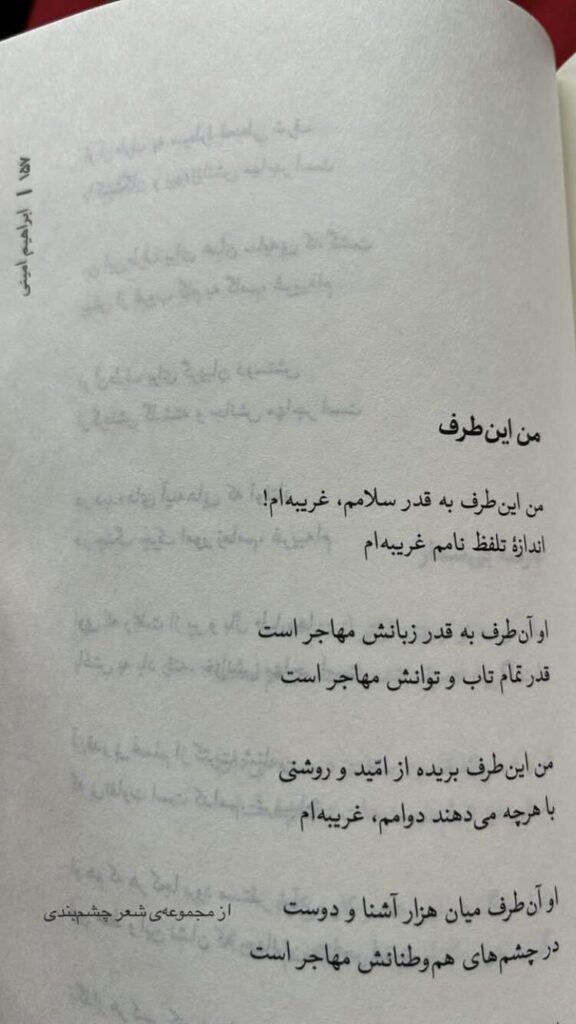 ۱۵۷ | ابراهیم امینی
من این‌طرف
من این‌طرف به قدر سلامم، غریبه‌ام!
اندازهٔ تلفظ نامم غریبه‌ام
او آن‌طرف به قدر زبانش مهاجر است
قدر تمام تاب و توانش مهاجر است
من این‌طرف بریده از امّید و روشنی
با هرچه می‌دهند دوامم، غریبه‌ام
او آن‌طرف میان هزار آشنا و دوست
از مجموعه‌ی شعر چشم‌بندی
در چشم‌های هم‌وطنانش مهاجر است